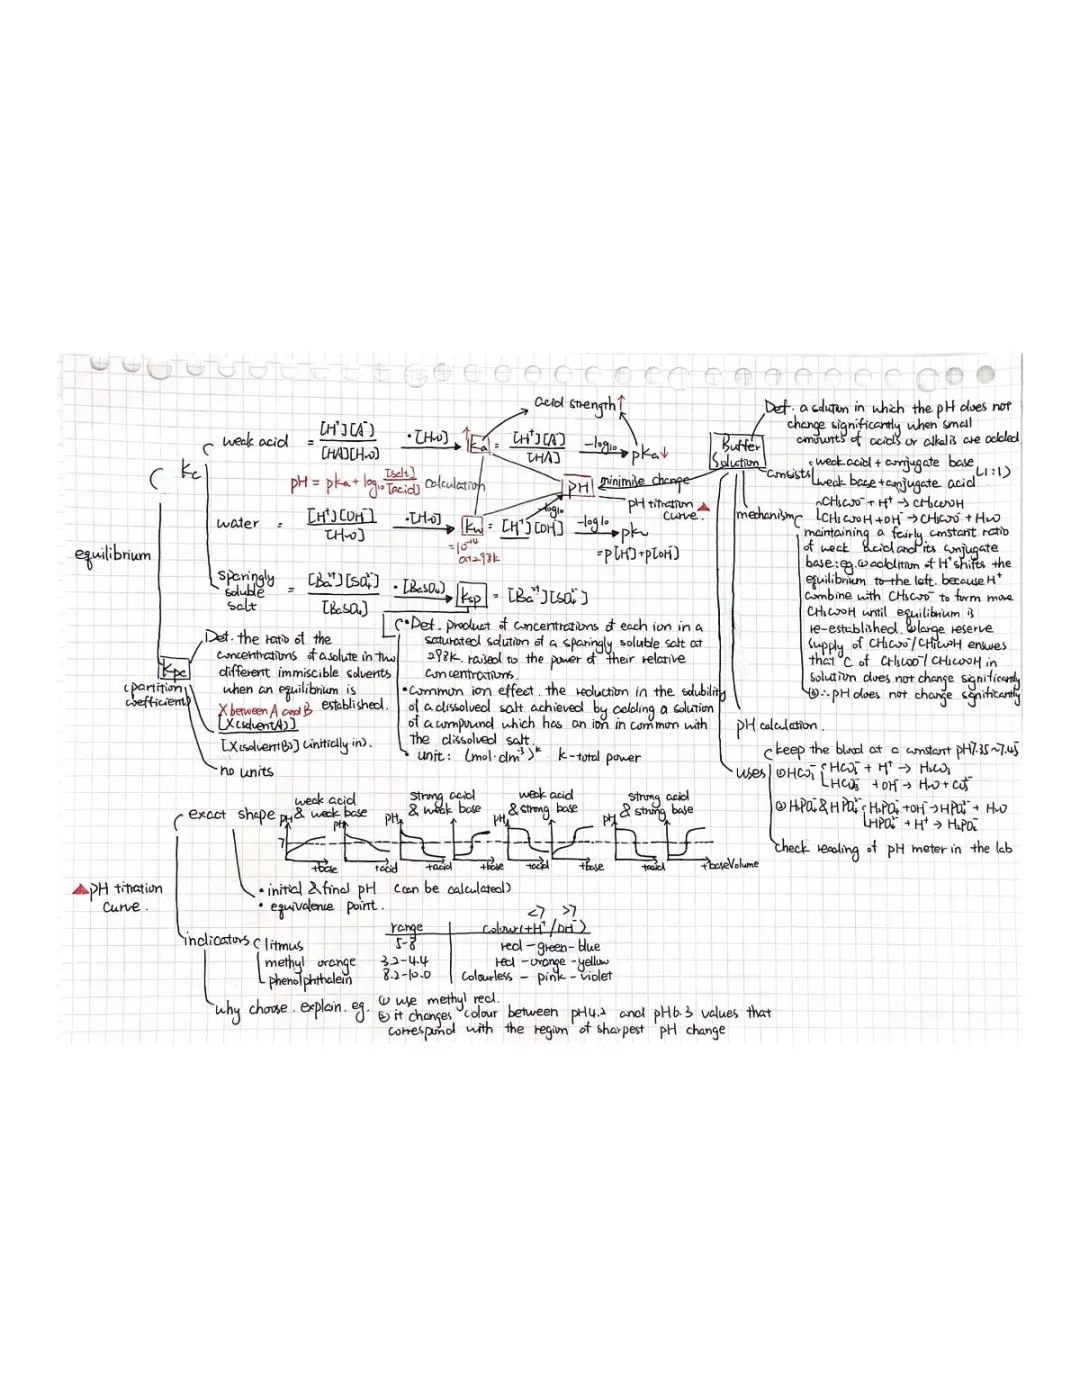 equilibrium
Kc
weak acid = [H⁺][A⁻] / [HA][H₂O] ·[H₂O] → ↑Ka = [H⁺][A⁻] / [HA] -log₁₀ → pKa↓
acid strength↑
pH = pKa + log₁₀ [salt]/[acid] calculation
pH
minimise change
pH titration
curve. ▲
water = [H⁺][OH⁻] / [H₂O] ·[H₂O] → Kw = [H⁺][OH⁻] -log₁₀ → pKw
-log₁₀
=10⁻¹⁴
at 298K
=p[H⁺]+p[OH⁻]
sparingly
soluble
salt
= [Ba²⁺][SO₄²⁻] / [BaSO₄] ·[BaSO₄] → Ksp = [Ba²⁺][SO₄²⁻]
•Def. product of concentrations of each ion in a
saturated solution of a sparingly soluble salt at
298K. raised to the power of their relative
concentrations.
•Common ion effect. the reduction in the solubility
of a dissolved salt achieved by adding a solution
of a compound which has an ion in common with
the dissolved salt.
• unit: (mol·dm⁻³)ᵏ k-total power
Kpc
(partition
coefficient)
Def. the ratio of the
concentrations of a solute in two
different immiscible solvents
when an equilibrium is
established.
X between A and B
[X(solvent A)]
[X(solvent B)] (initially in).
no units
Buffer
Solution
Def. a solution in which the pH does not
change significantly when small
amounts of acids or alkalis are added
consists
weak acid + conjugate base
weak base + conjugate acid
(1:1)
mechanism
CH₃COO⁻ + H⁺ → CH₃COOH
CH₃COOH + OH⁻ → CH₃COO⁻ + H₂O
maintaining a fairly constant ratio
of weak acid and its conjugate
base: eg. ① addition of H⁺ shifts the
equilibrium to the left. because H⁺
combine with CH₃COO⁻ to form more
CH₃COOH until equilibrium is
re-established. ② large reserve
supply of CH₃COO⁻/CH₃COOH ensures
that C of CH₃COO⁻/CH₃COOH in
solution does not change significantly
③ ∴ pH does not change significantly
pH calculation.
uses
keep the blood at a constant pH7.35~7.45
① HCO₃⁻ HCO₃⁻ + H⁺ → H₂CO₃
HCO₃⁻ + OH⁻ → H₂O + CO₃²⁻
② H₂PO₄⁻ & HPO₄²⁻ H₂PO₄⁻ + OH⁻ → HPO₄²⁻ + H₂O
HPO₄²⁻ + H⁺ → H₂PO₄⁻
check reading of pH meter in the lab
▲pH titration
curve.
exact shape
weak acid
& weak base
strong acid
& weak base
weak acid
& strong base
strong acid
& strong base
pH pH pH pH pH
7
+base +acid +acid +base +acid +base +acid +base Volume
• initial & final pH (can be calculated)
• equivalence point.
indicators
range
<7 >7
colour (+H⁺/OH⁻)
litmus 5-8 red - green - blue
methyl orange 3.2-4.4 red - orange - yellow
phenolphthalein 8.2-10.0 colourless - pink - violet
why choose. explain. eg. ① use methyl red.
② it changes colour between pH4.2 and pH6.3 values that
correspond with the region of sharpest pH change